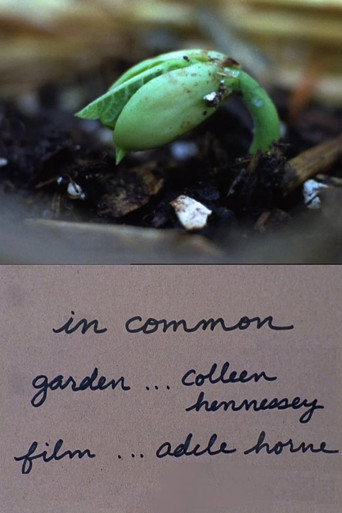 in common
garden ... colleen
hennessey
film ... adele horne